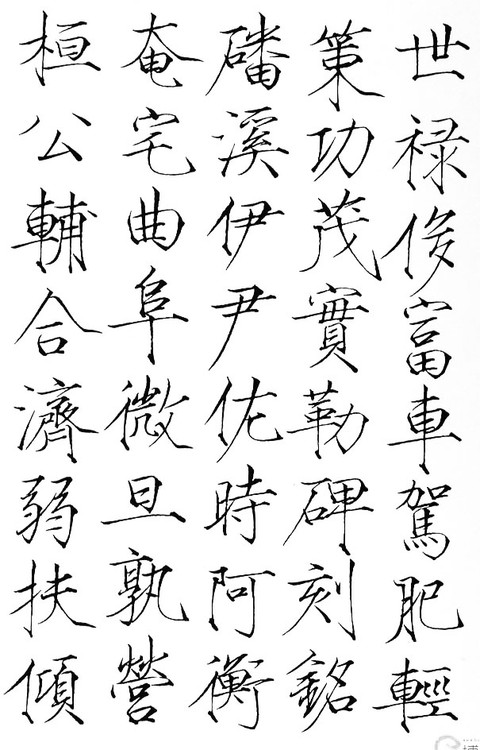 世禄俊富車駕肥輕
策功茂實勒碑刻銘
磻溪伊尹佐時阿衡
奄宅曲阜微旦孰營
桓公輔合濟弱扶傾